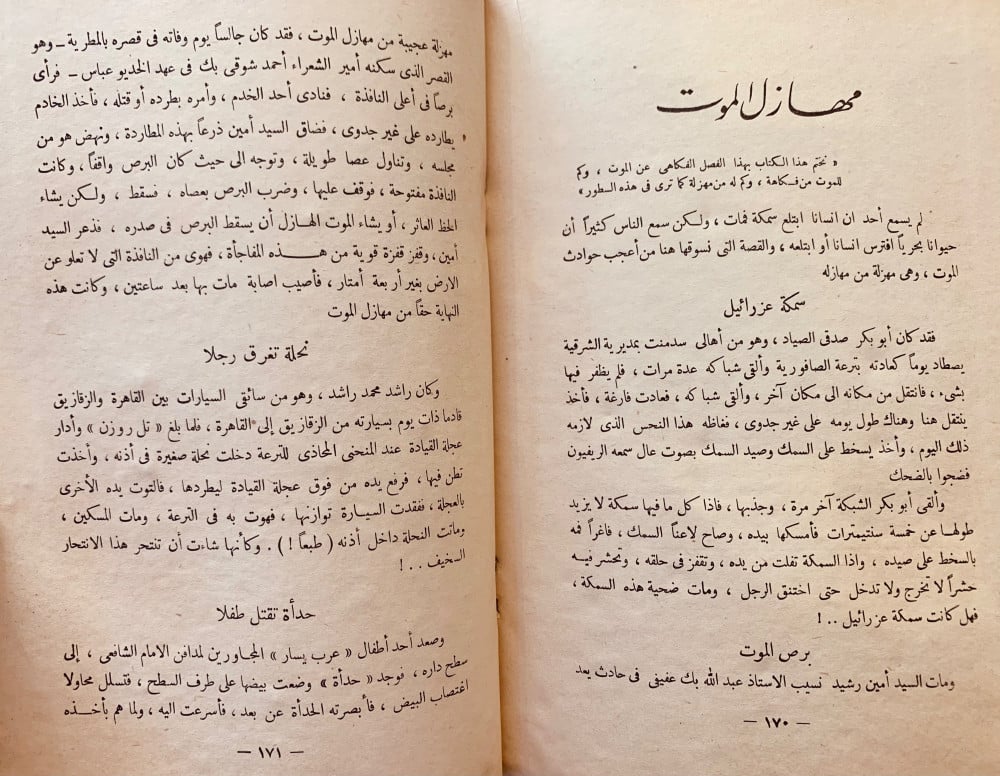 مهازل الموت
« نختم هذا الكتاب بهذا الفصل الفكاهى عن الموت ، وكم
للموت من فكاهة ، وكم له من مهزلة كما ترى فى هذه السطور »
لم يسمع أحد ان انسانا ابتلع سمكة فمات ، ولكن سمع الناس كثيراً أن
حيوانا بحرياً افترس انسانا أو ابتلعه ، والقصة التى نسوقها هنا من أعجب حوادث
الموت ، وهى مهزلة من مهازله
سمكة عزرائيل
فقد كان أبو بكر صدقى الصياد ، وهو من أهالى سدمنت بمديرية الشرقية
يصطاد يوماً كعادته بترعة الصافورية وألقى شباكه عدة مرات ، فلم يظفر فيها
بشىء ، فانتقل من مكانه الى مكان آخر ، وألقى شباكه ، فعادت فارغة ، فأخذ
ينتقل هنا وهناك طول يومه على غير جدوى ، فغاظه هذا النحس الذى لازمه
ذلك اليوم ، وأخذ يسخط على السمك وصيد السمك بصوت عال سمعه الريفيون
فضجوا بالضحك
وألقى أبو بكر الشبكة آخر مرة ، وجذبها ، فاذا كل ما فيها سمكة لا يزيد
طولها عن خمسة سنتيمترات فأمسكها بيده ، وصاح لاعناً السمك ، فاغراً فمه
بالسخط على صيده ، واذا السمكة تفلت من يده ، وتقفز فى حلقه ، وتحشر فيه
حشراً لا تخرج ولا تدخل حتى اختنق الرجل ، ومات ضحية هذه السمكة ،
فهل كانت سمكة عزرائيل . . !
برص الموت
ومات السيد أمين رشيد نسيب الاستاذ عبد الله بك عفيفى فى حادث يعد
— ١٧٠ —
مهزلة عجيبة من مهازل الموت ، فقد كان جالساً يوم وفاته فى قصره بالمطرية – وهو
القصر الذى سكنه أمير الشعراء أحمد شوقى بك فى عهد الخديو عباس – فرأى
برصاً فى أعلى النافذة ، فنادى أحد الخدم ، وأمره بطرده أو قتله ، فأخذ الخادم
يطارده على غير جدوى ، فضاق السيد أمين ذرعاً بهذه المطاردة ، ونهض هو من
مجلسه ، وتناول عصا طويلة ، وتوجه الى حيث كان البرص واقفاً ، وكانت
النافذة مفتوحة ، فوقف عليها ، وضرب البرص بعصاه ، فسقط ، ولكن يشاء
الحظ العاثر ، أو يشاء الموت الهازل أن يسقط البرص فى صدره ، فذعر السيد
أمين ، وقفز قفزة قوية من هذه المفاجأة ، فهوى من النافذة التى لا تعلو عن
الارض بغير أربعة أمتار ، فأصيب اصابة مات بها بعد ساعتين ، وكانت هذه
النهاية حقاً من مهازل الموت
نحلة تغرق رجلا
وكان راشد محمد راشد ، وهو من سائقى السيارات بين القاهرة والزقازيق
قادما ذات يوم بسيارته من الزقازيق إلى القاهرة ، فلما بلغ « تل روزن » وأدار
عجلة القيادة عند المنحنى المحاذى للترعة دخلت نحلة صغيرة فى أذنه ، وأخذت
تطن فيها ، فرفع يده من فوق عجلة القيادة ليطردها ، فالتوت يده الأخرى
بالعجلة ، ففقدت السيارة توازنها ، فهوت به فى الترعة ، ومات المسكين ،
وماتت النحلة داخل أذنه ( طبعاً ! ) . وكأنها شاءت أن تنتحر هذا الانتحار
السخيف . . !
حدأة تقتل طفلا
وصعد أحد أطفال « عرب يسار » المجاورين لمدافن الامام الشافعى ، إلى
سطح داره ، فوجد « حدأة » وضعت بيضها على طرف السطح ، فتسلل محاولا
اغتصاب البيض ، فأبصرته الحدأة عن بعد ، فأسرعت اليه ، ولما هم بأخذه
— ١٧١ —